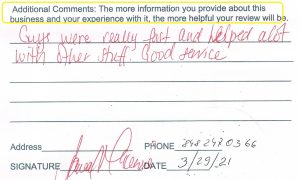 Additional Comments: The more information you provide about this
business and your experience with it, the more helpful your review will be.
Guys were really fast and helped alot
with other stuff. Good service
Address PHONE 8482470366
SIGNATURE DATE 3/29/21